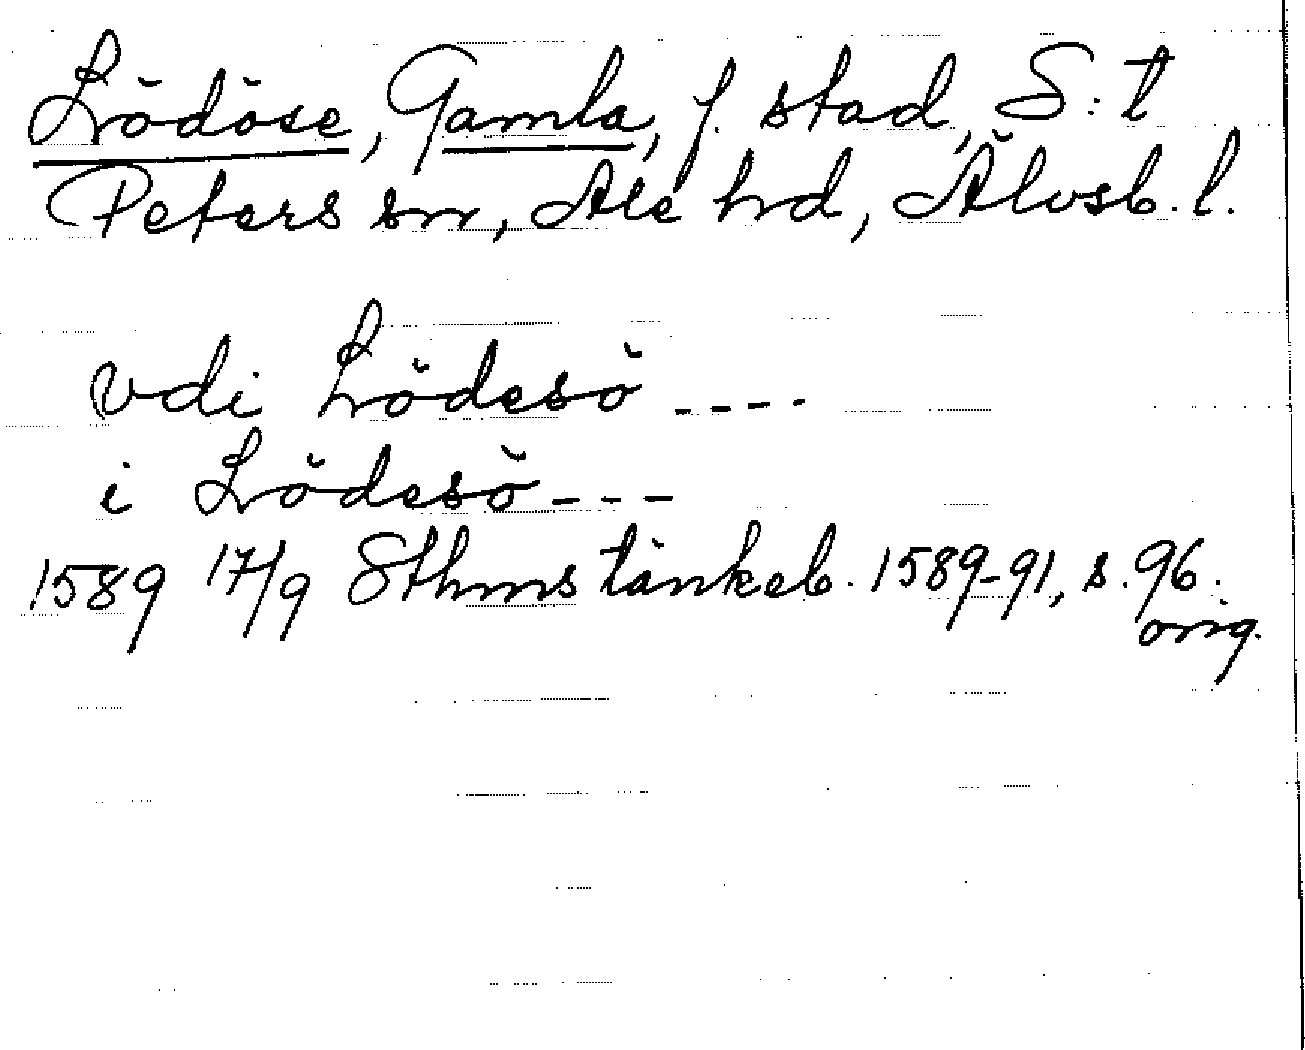 Lödöse, Gamla, f. stad, S:t
Peters sn, Ale hd, Älvsb. l.
vdi Lödesö ----
i Lödesö ---
1589 17/9 Sthms tänkeb. 1589-91, s. 96.
orig.